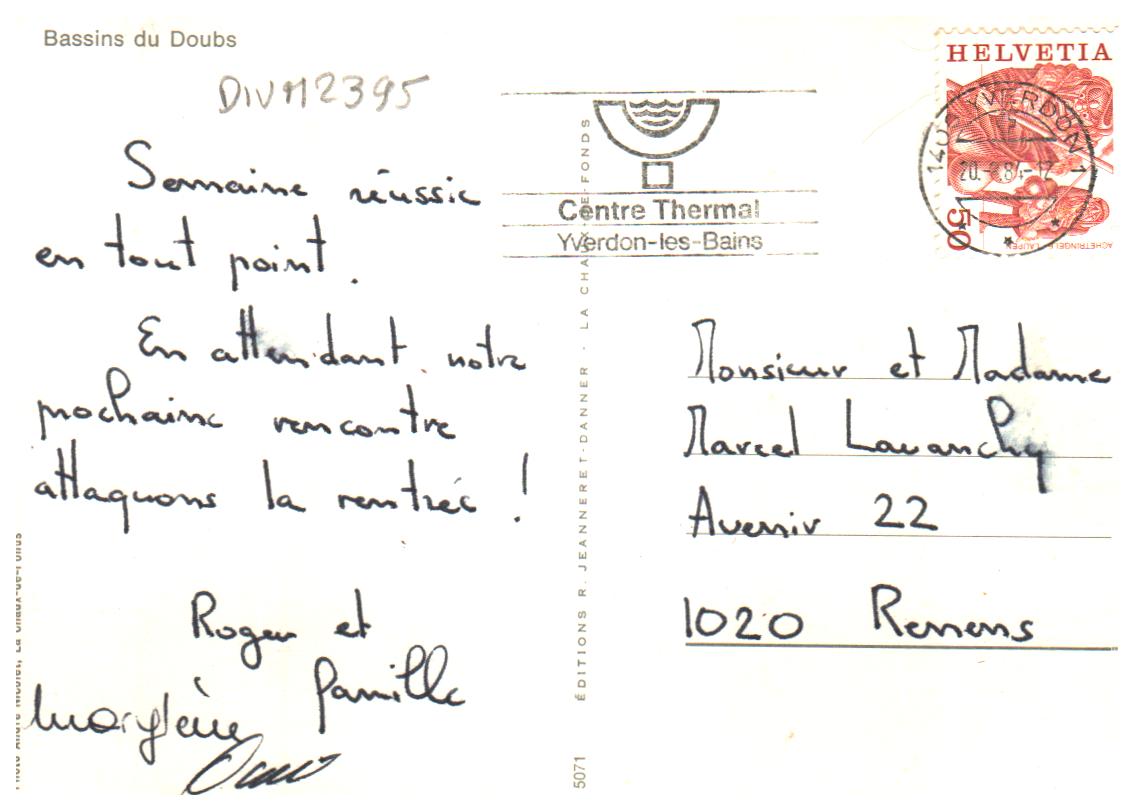 Bassins du Doubs
DIVM2395
Semaine réussie
en tout point.
En attendant notre
prochaine rencontre
attaquons la rentrée !
Roger et
famille
Marylène
HELVETIA
50
ACHETRINGELE LAUPEN
1400 YVERDON 1
20.-8.84-12
Centre Thermal
Yverdon-les-Bains
Monsieur et Madame
Marcel Lavanchy
Avenir 22
1020 Renens
5071 ÉDITIONS R. JEANNERET-DANNER - LA CHAUX-DE-FONDS
Photo André Nicolet, La Chaux-de-Fonds